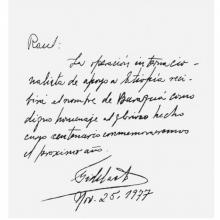 Raul:
La operación internacio-
nalista de apoyo a Etiopía reci-
birá el nombre de Baraguá como
digno homenaje al glorioso hecho
cuyo centenario conmemoraremos
el próximo año.
Fidel Castro
Nov. 25, 1977